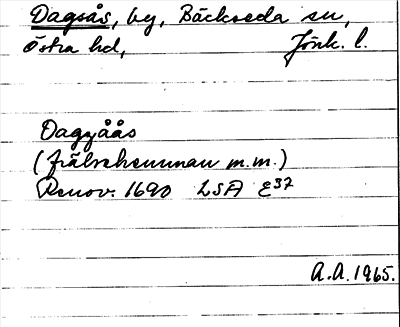 Dagsås, by, Bäckseda sn,
Östra hd, Jönk. l.
Dagzåås
(frälsehemman m.m.)
Renov. 1690 LSA E37
A.A. 1965.